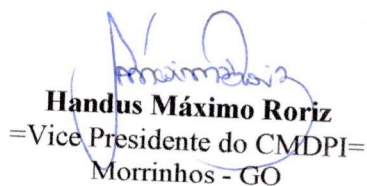 Handus Máximo Roriz
=Vice Presidente do CMDPI=
Morrinhos - GO